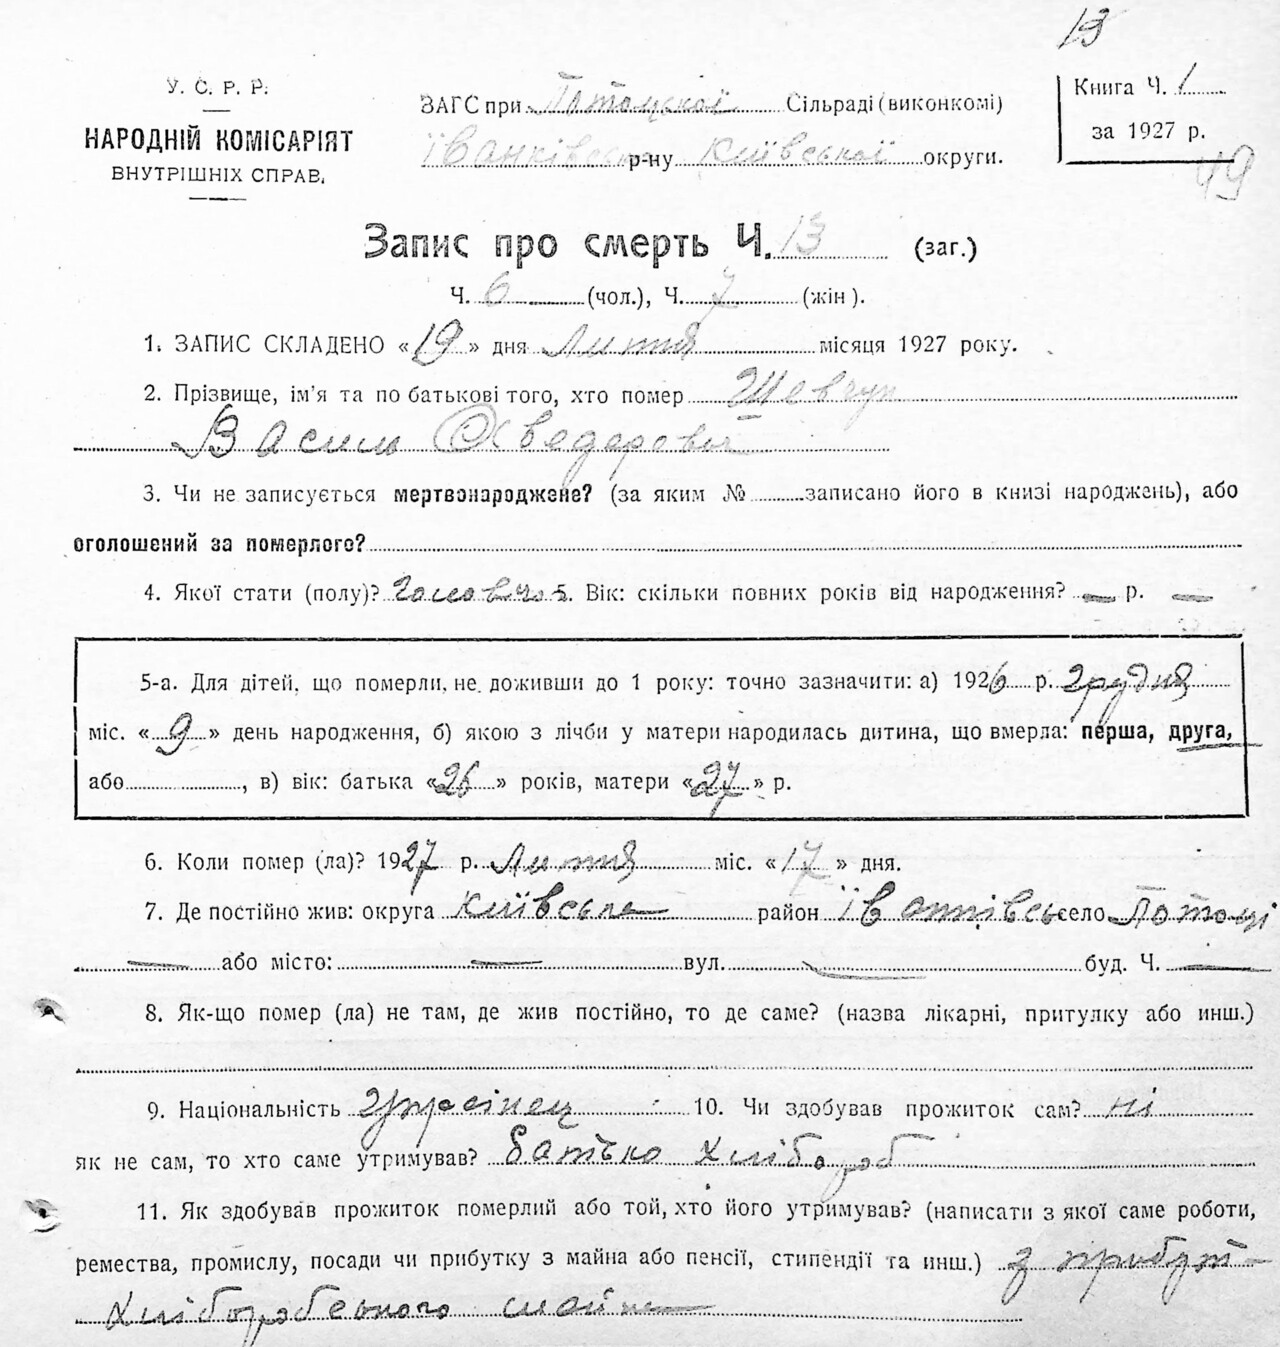 13
У. С. Р. Р.
НАРОДНІЙ КОМІСАРІЯТ
ВНУТРІШНІХ СПРАВ.
ЗАГС при Потоцької Сільраді (виконкомі)
Їванківсько р-ну Київської округи.
Книга Ч. 1
за 1927 р.
49
Запис про смерть Ч. 13 (заг.)
Ч. 6 (чол.), Ч. 7 (жін).
1. ЗАПИС СКЛАДЕНО «19» дня Лютня місяця 1927 року.
2. Прізвище, ім'я та по батькові того, хто помер Шевчук
Василь Хведерович
3. Чи не записується мертвонароджене? (за яким № записано його в книзі народжень), або
оголошений за померлого?
4. Якої стати (полу)? Чоловчої 5. Вік: скільки повних років від народження? — р. —
5-а. Для дітей, що померли, не доживши до 1 року: точно зазначити: а) 1926 р. Грудня
міс. «9» день народження, б) якою з лічби у матери народилась дитина, що вмерла: перша, друга,
або, в) вік: батька «26» років, матери «27» р.
6. Коли помер (ла)? 1927 р. Лютня міс. «17» дня.
7. Де постійно жив: округа Київська район Їванківсь село Потоці
— або місто: — вул. — буд. Ч. —
8. Як-що помер (ла) не там, де жив постійно, то де саме? (назва лікарні, притулку або инш.)
9. Національність Украінец 10. Чи здобував прожиток сам? ні
як не сам, то хто саме утримував? батько хлібороб
11. Як здобував прожиток померлий або той, хто його утримував? (написати з якої саме роботи,
ремества, промислу, посади чи прибутку з майна або пенсії, стипендії та инш.) з прибут
хліборобського майна